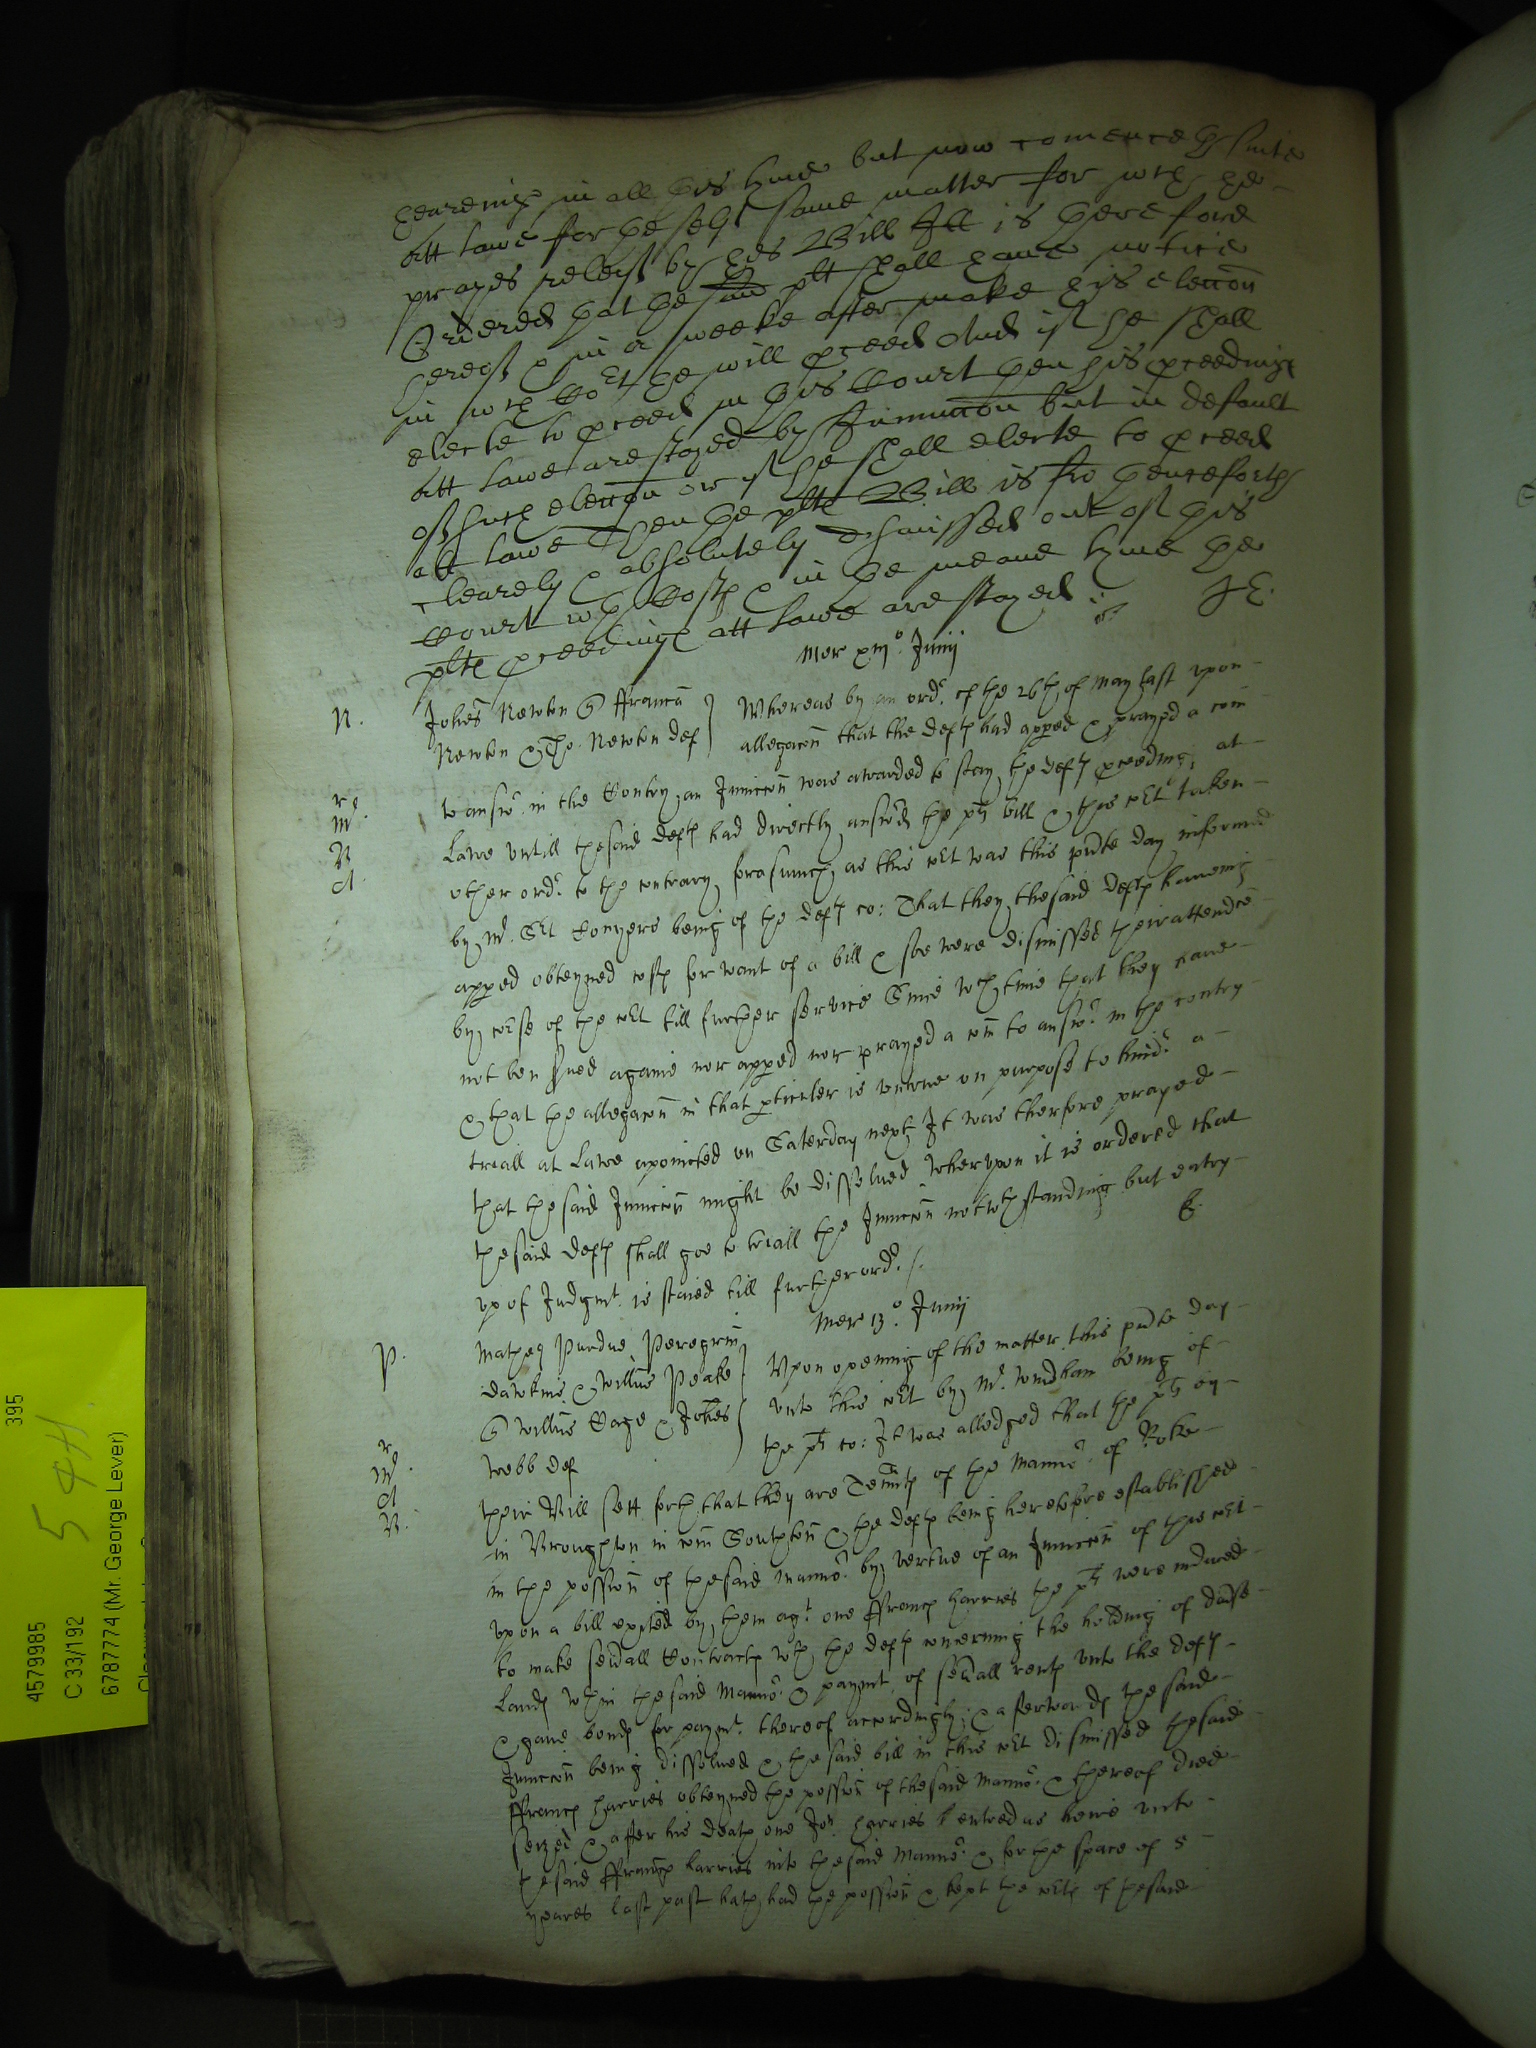 heareing in all this tyme but now comence the suite
att lawe for the self same matter for wch he
prayes releif by his Bill Itt is therefore
Ordered that the said plt shall have notice
hereof & in a weeke after make his eleccon
in wch Cort he will pceed And if he shall
electe to pceed in this Court then his pceedings
att lawe are stayed by Iniunccon but in default
of such eleccon or if he shall electe to pceed
att lawe Then the plts Bill is fro henceforth
clearely & absolutely dismissed out of this
Court wth Costs & in the meane tyme the
plts pceedings att lawe are stayed
Mer xiijo Junij
N.
Johes Newton & Franca
Newton & Tho. Newton def
Whereas by an ordr of the 26th of May last upon
allegacon that the defts had apped & prayed a com
to answr in the Contry, an Iniuccon was awarded to stay the defts pceedings at
Lawe untill the said defts had directly answrd the plts bill & this cort taken
other ordr to the contrary, forasmuch as this cort was this psnte day informed
by Mr. Sert Conyers being of the defts co: That they the said defts haveing
apped obteyned costs for want of a bill & soe were dismissed their attendce
by corse of the cort till further service Since wch time that they have
not ben sued againe nor apped nor prayed a com to answr in the contry
& that the allegacon in that pticuler is untrue on purpose to hindr a
triall at Lawe apointed on Saterday next, It was therfore prayed
that the said Iniuccon might be dissolued wherupon it is ordered that
the said defts shall goe to triall the Iniuccon notwthstanding but entry
up of Judgmt is staied till further ordr
Mer 13o Junij
P.
Mathew Purdue, Peregrin
Dawkins & Willus Peake
& Willus Cage & Johes
Webb def
Upon opening of the matter this psnte day
unto this cort by Mr. Windham being of
the plts co: It was alledged that the plts by
their Bill sett forth that they are Tennts of the Mannor of Roke
in Broughton in com Southton & the defts being heretofore established
in the possion of the said Mannor by vertue of an Iniuccon of this cort
upon a bill exhited by them agt one Francs Harries the plts were induced
to make seuall Contracts wth the defts concerning the holding of
Lands wthin the said Mannor & paymt of seuall rents unto the defts
& gave bonds for paymt thereof accordingly, & afterwards the said
Iniuccon being dissolued & the said bill in this cort dismissed the said
Francs Harries obteyned the possion of the said Mannor & thereof died
seized & after his death one Jon Harries entred as heire unto
the said Francs Harries into the said Mannor & for the space of 5
yeares last past hath had the possion & kept the corts of the said
395
54H
4579985
C 33/192
6787774 (Mr. George Lever)